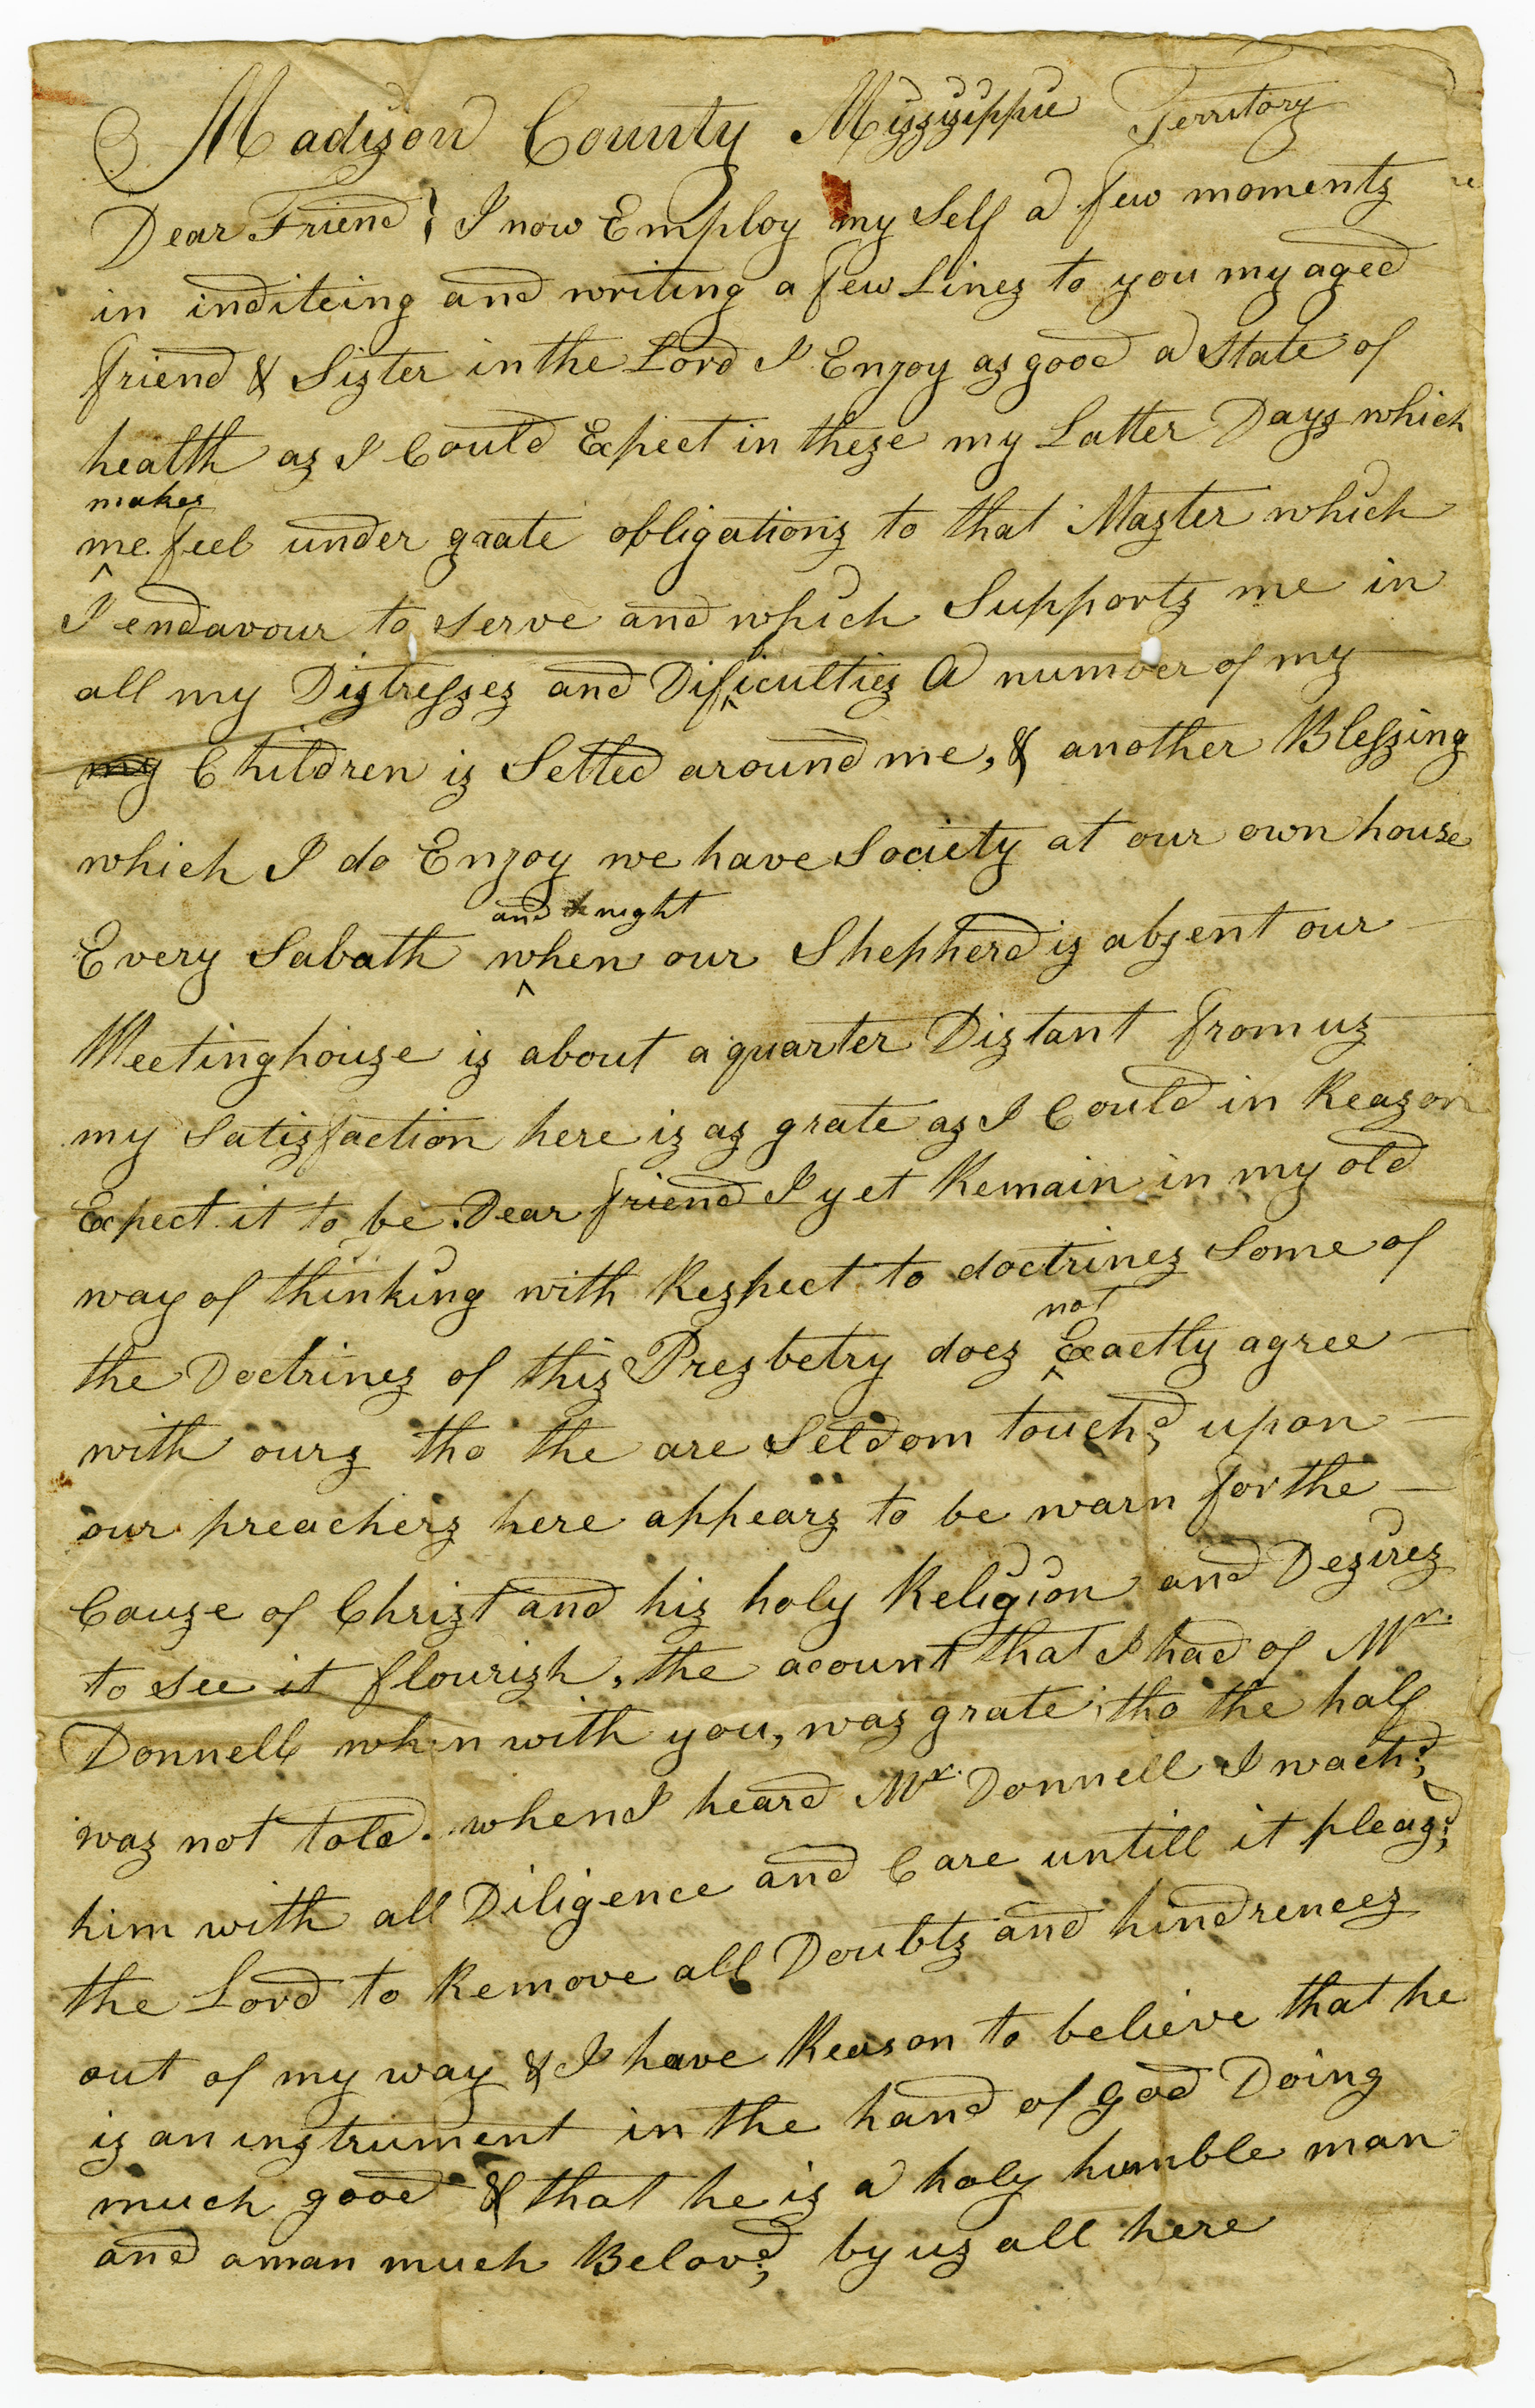 Madison County Mississippie Territory
Dear Friend; I now Employ my Self a few moments
in inditeing and writing a few Lines to you my aged
friend & Sister in the Lord I Enjoy as good a State of
health as I Could Expect in these my Latter Days which
makes
me feel under grate obligations to that Master which
I endavour to serve and which Supports me in
all my Distresses and Dificulties A number of my
my Children is Setled around me, & another Blessing
which I do Enjoy we have Society at our own house
and night
Every Sabath when our Shepherd is absent our
Meetinghouse is about a quarter Distant from us
my Satisfaction here is as grate as I Could in Reason
Expect it to be. Dear friend I yet Remain in my old
way of thinking with Respect to doctrines Some of
not
the Doctrines of this Presbetry does Exactly agree
with ours tho the are Seldom touchd, upon
our preachers here appears to be warn for the
Cause of Christ and his holy Religion and Desires
to see it flourish, the acount that I had of Mr.
Donnell when with you, was grate; tho the half
was not told. when I heard Mr. Donnell I wachd,
him with all Diligence and Care untill it pleasd,
the Lord to Remove all Doubts and hindrences
out of my way & I have Reason to believe that he
is an instrument in the hand of God Doing
much good & that he is a holy humble man
and a man much Belovd, by us all here